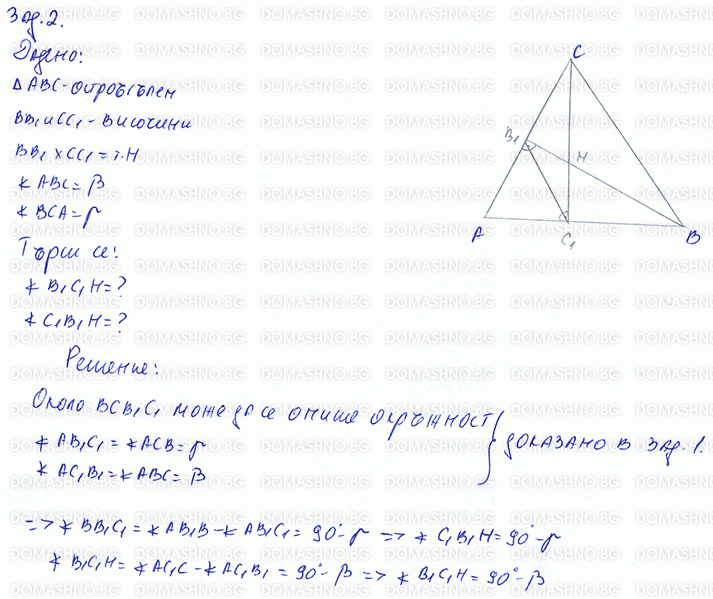 Зад. 2.
Дадено:
△ ABC - остроъгълен
BB₁ и CC₁ - височини
BB₁ x CC₁ = т. H
∢ ABC = β
∢ BCA = γ
Търси се:
∢ B₁C₁H = ?
∢ C₁B₁H = ?
Решение:
Около BCB₁C₁ може да се опише окръжност
∢ AB₁C₁ = ∢ ACB = γ
∢ AC₁B₁ = ∢ ABC = β
} доказано в зад. 1.
=> ∢ BB₁C₁ = ∢ AB₁B - ∢ AB₁C₁ = 90° - γ => ∢ C₁B₁H = 90° - γ
∢ B₁C₁H = ∢ AC₁C - ∢ AC₁B₁ = 90° - β => ∢ B₁C₁H = 90° - β
C
B₁
H
A
C₁
B
DOMASHNO.BG